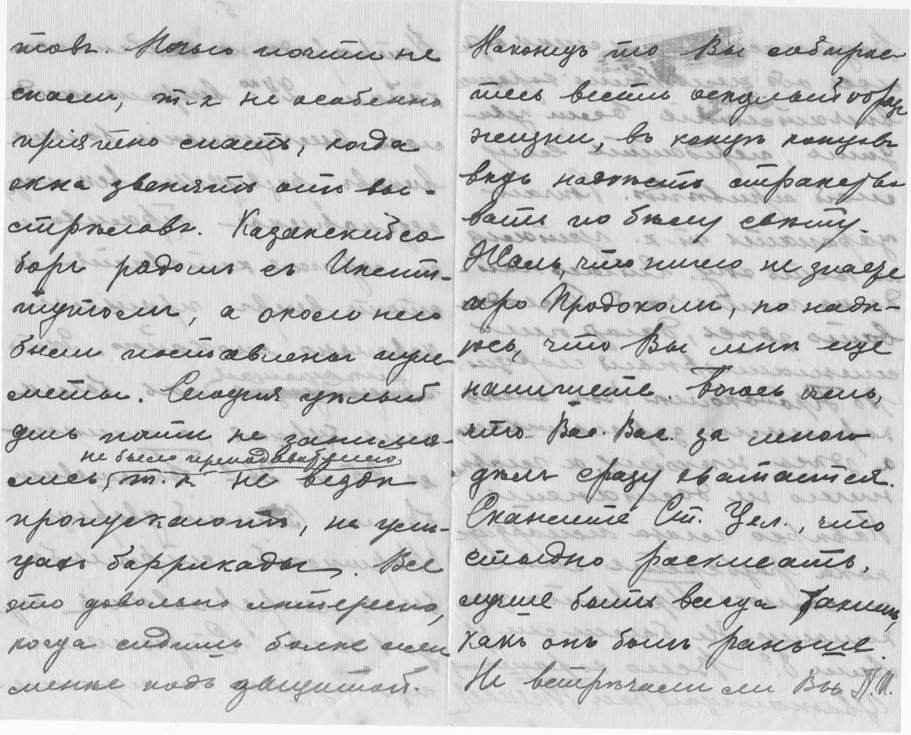 товъ. Ночью почти не
спали, т.к не особенно
пріятно спать, когда
окна звенятъ отъ вы-
стрѣловъ. Казанскій со
боръ рядомъ съ Инсти-
тутомъ, а около него
были поставлены пуле
меты. Сегодня цѣлый
день почти не занима-
не было преподавателей
лись, т.к не вездѣ
пропускаютъ, на ули-
цахъ баррикады. Все
это довольно интересно,
когда сидишь болѣе или
менѣе подъ защитой.
Наконецъ то Вы собирае
тесь вести осѣдлый образъ
жизни, въ концѣ концовъ
вѣдь надоѣстъ странство
вать по бѣлу свѣту.
Жаль, что ничего не знаете
про Продоколь, но надѣ-
юсь, что Вы мнѣ еще
напишете. Боюсь очень,
что Вас. Вас. за много
дѣлъ сразу хватается.
Скажите Ст. Цел., что
стыдно раскисать,
лучше быть всегда такимъ,
какъ онъ былъ раньше.
Не встрѣчали ли Вы П.И.